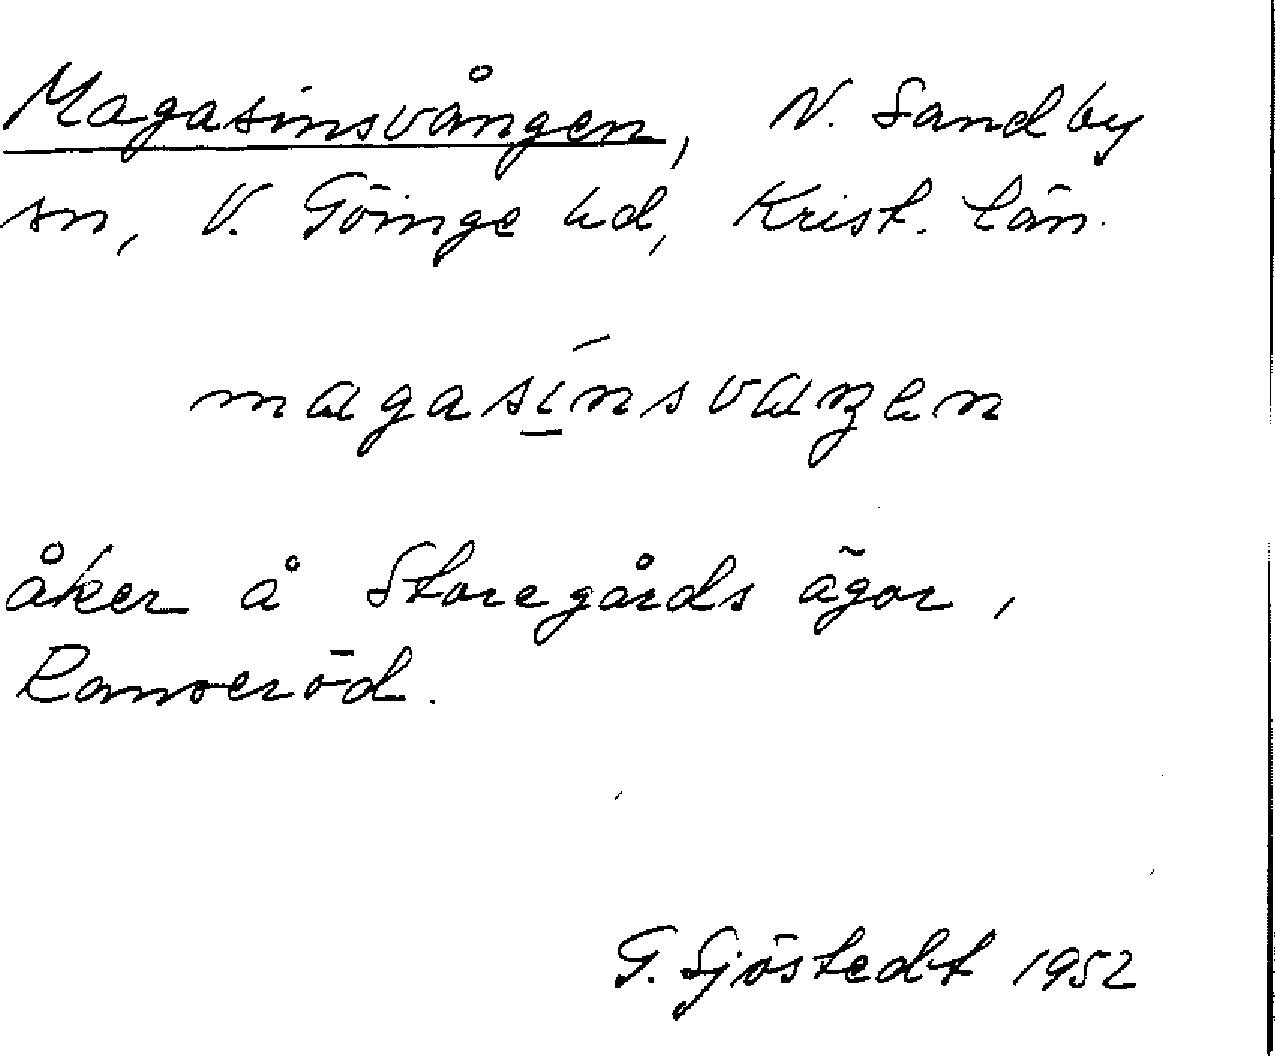 Magasinsvången, N. Sandby
sn, V. Göinge hd, Krist. län.
magasínsvaŋen
åker å Storegårds ägor,
Ranseröd.
G. Sjöstedt 1952